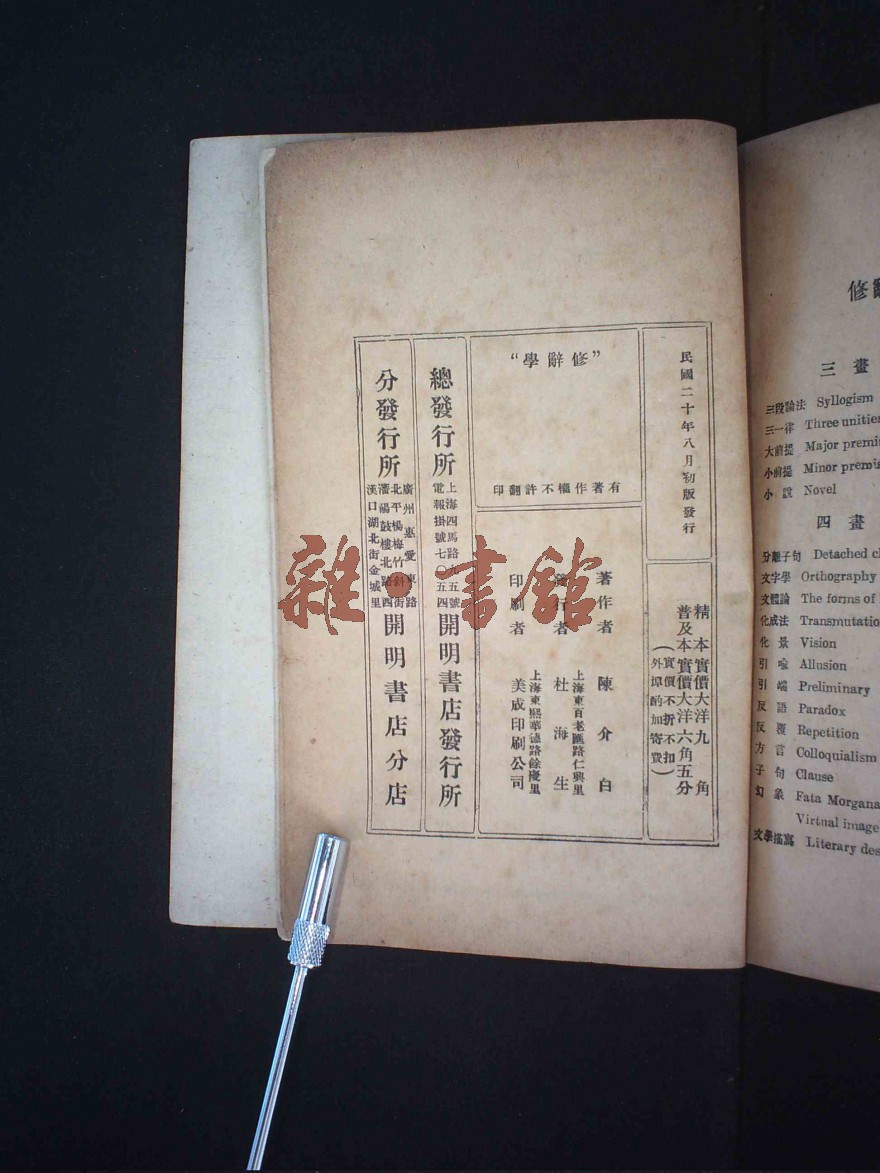 民國二十年八月初版發行
精本實價大洋九角
普及本實價大洋六角五分
(實價不折不扣
外埠酌加寄費)
“修辭學”
有著作權不許翻印
著作者 陳介白
發行者 杜海生
上海東百老匯路仁興里
印刷者 美成印刷公司
上海東熙華德路餘慶里
總發行所
上海四馬路九五號
電報掛號七〇五四
開明書店發行所
分發行所
廣州惠愛東路
北平楊梅竹斜街
瀋陽鼓樓北路西
漢口湖北街金城里
開明書店分店
雜·書館
修辭
三畫
三段論法 Syllogism
三一律 Three unities
大前提 Major premis
小前提 Minor premis
小說 Novel
四畫
分離子句 Detached cl
文字學 Orthography
文體論 The forms of
化成法 Transmutatio
化景 Vision
引喻 Allusion
引端 Preliminary
反語 Paradox
反覆 Repetition
方言 Colloquialism
子句 Clause
幻象 Fata Morgana
Virtual image
文學描寫 Literary des